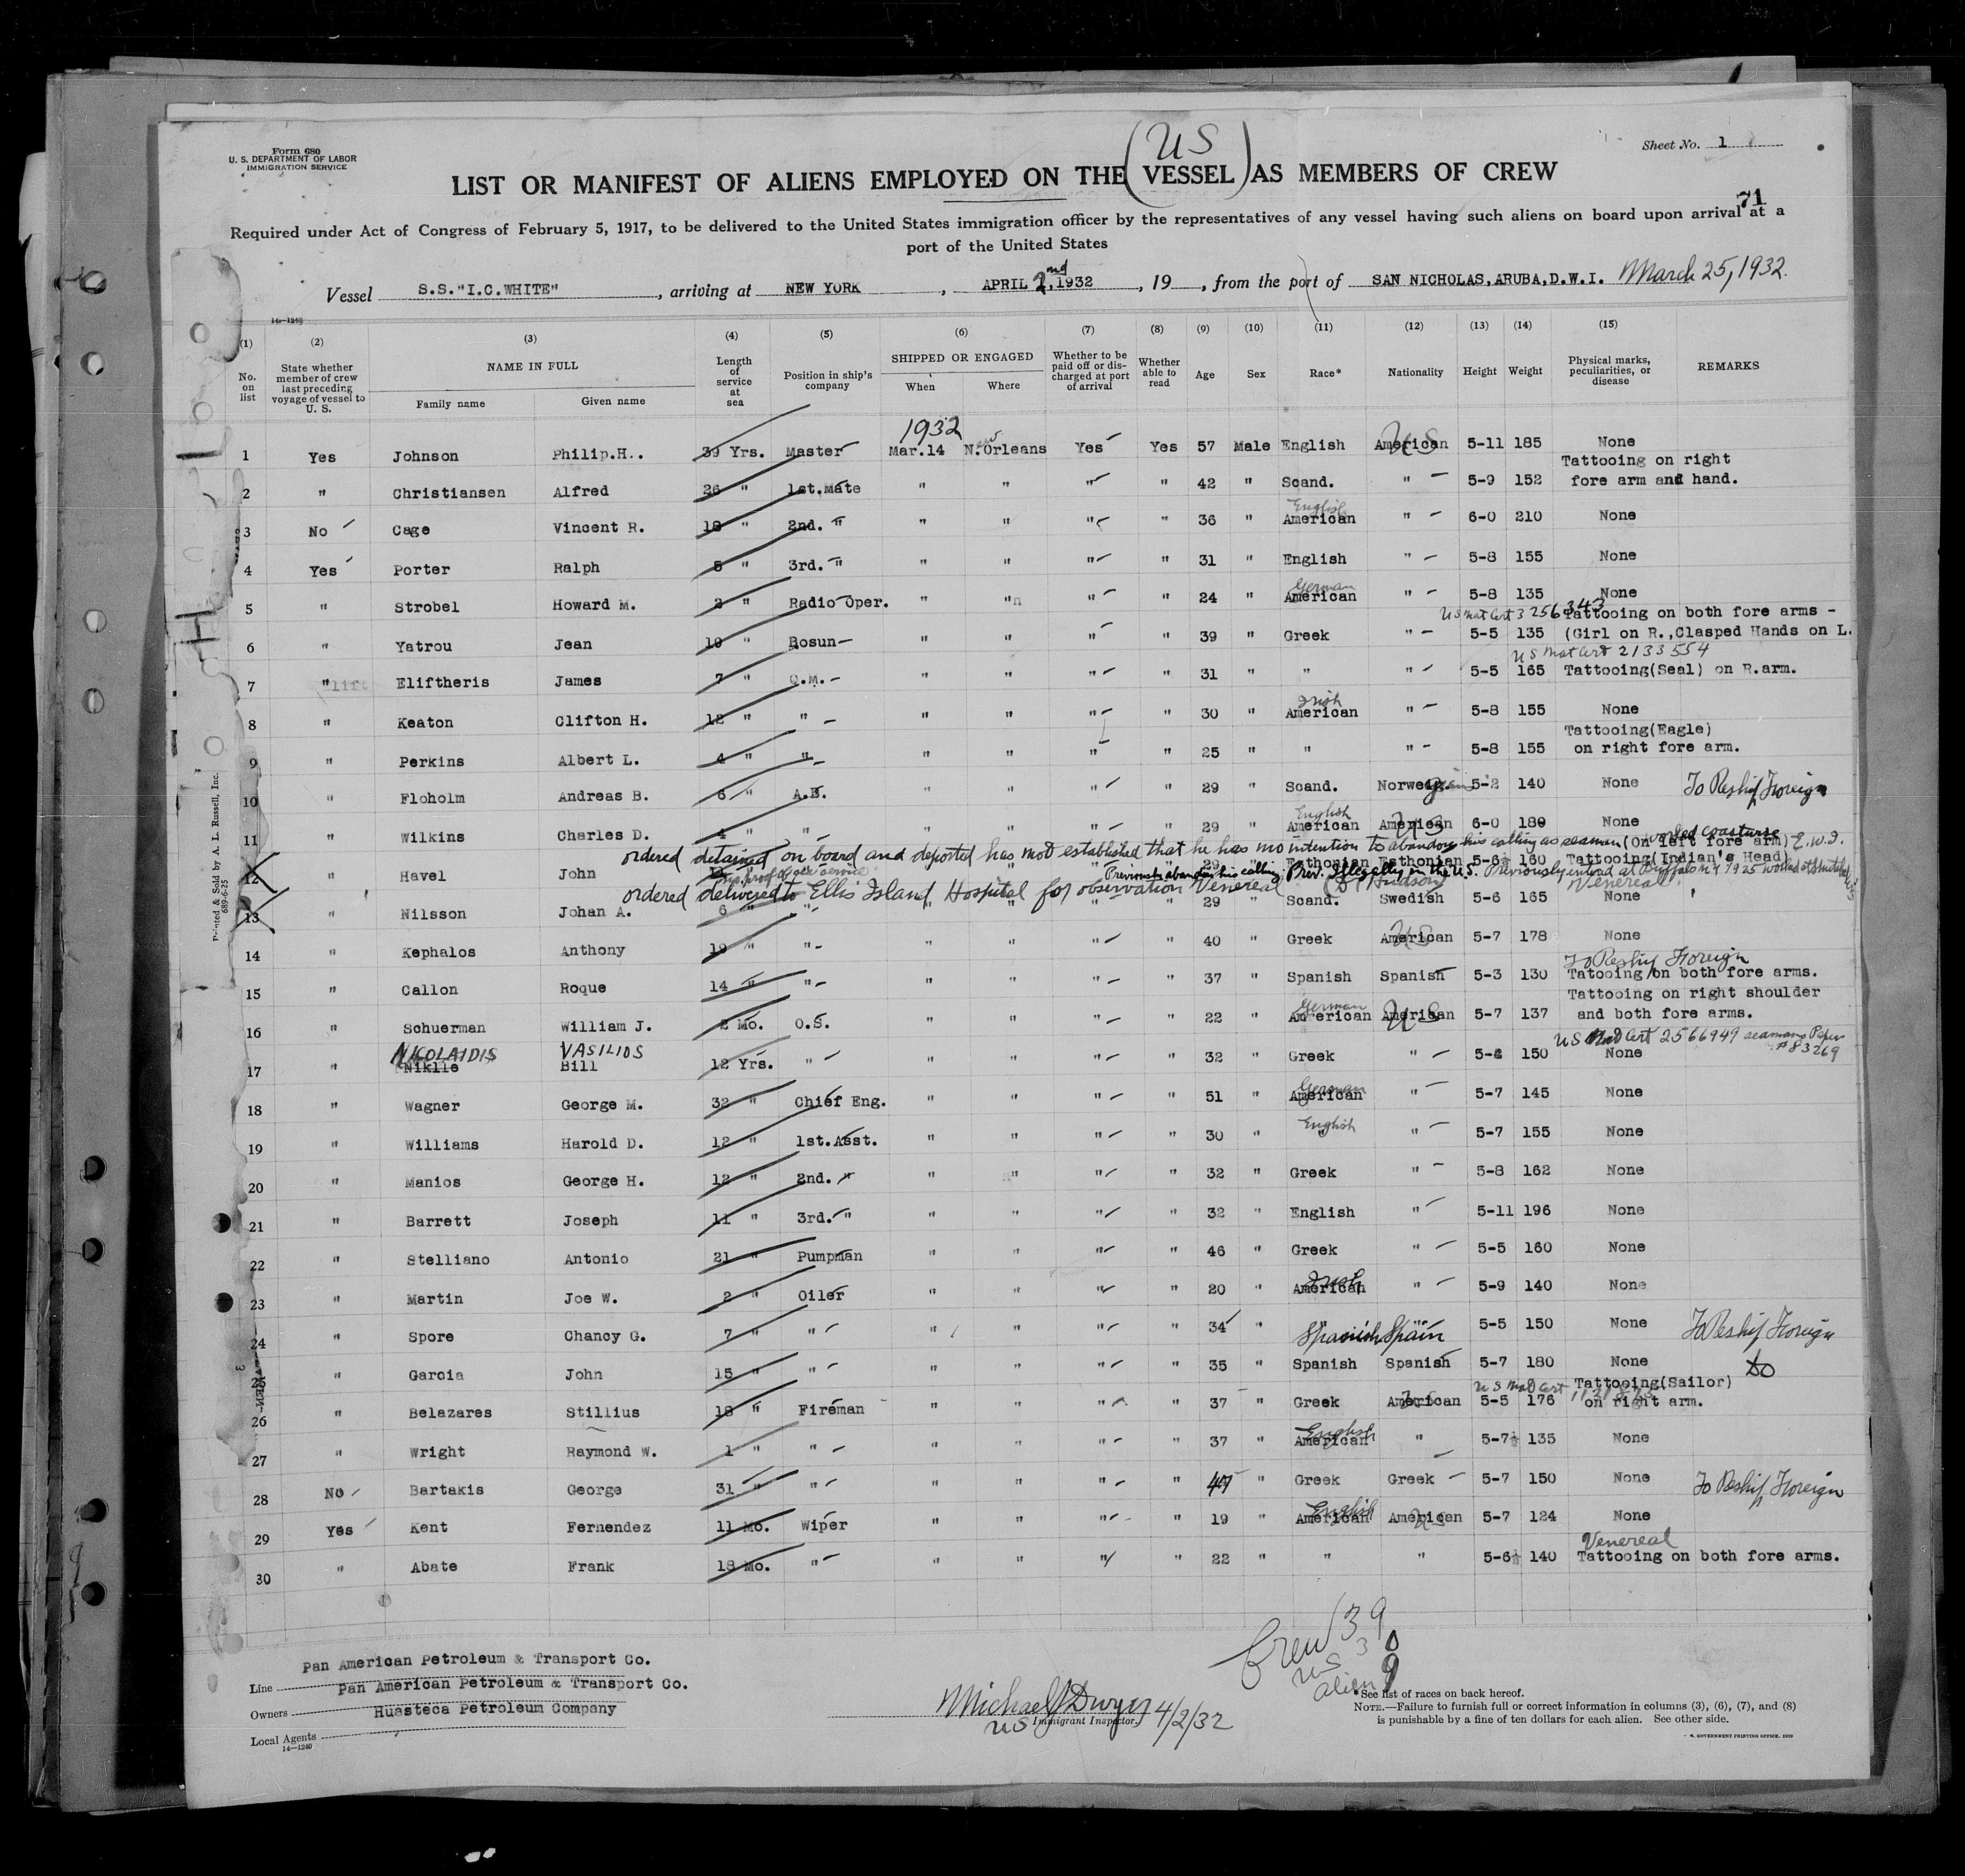 Form 680
U. S. DEPARTMENT OF LABOR
IMMIGRATION SERVICE
Sheet No. 1
(US)
LIST OR MANIFEST OF ALIENS EMPLOYED ON THE VESSEL AS MEMBERS OF CREW
71
Required under Act of Congress of February 5, 1917, to be delivered to the United States immigration officer by the representatives of any vessel having such aliens on board upon arrival at a
port of the United States
Vessel S.S."I.C.WHITE", arriving at NEW YORK, APRIL 2nd,1932, 19, from the port of SAN NICHOLAS,ARUBA,D.W.I. March 25, 1932.
14-1240
(1) (2) (3) (4) (5) (6) (7) (8) (9) (10) (11) (12) (13) (14) (15)
No. on list
State whether member of crew last preceding voyage of vessel to U. S.
NAME IN FULL
Family name Given name
Length of service at sea
Position in ship's company
SHIPPED OR ENGAGED
When Where
Whether to be paid off or discharged at port of arrival
Whether able to read
Age Sex Race* Nationality Height Weight
Physical marks, peculiarities, or disease
REMARKS
1932
1 Yes Johnson Philip.H.. 39 Yrs. Master Mar.14 N.Orleans Yes Yes 57 Male English American US 5-11 185 None
2 " Christiansen Alfred 26 " 1st.Mate " " " " 42 " Scand. " 5-9 152 Tattooing on right fore arm and hand.
3 No Cage Vincent R. 18 " 2nd. " " " " " 36 " American English " 6-0 210 None
4 Yes Porter Ralph 5 " 3rd. " " " " " 31 " English " 5-8 155 None
5 " Strobel Howard M. 2 " Radio Oper. " " " " 24 " American German " 5-8 135 None
US Nat Cert 3256343
6 " Yatrou Jean 19 " Bosun " " " " 39 " Greek " 5-5 135 Tattooing on both fore arms - (Girl on R.,Clasped Hands on L.
US Nat Cert 2133554
7 " Eliftheris James 7 " Q.M. " " " " 31 " " " 5-5 165 Tattooing(Seal) on R.arm.
8 " Keaton Clifton H. 12 " " " " " " 30 " American Irish " 5-8 155 None
9 " Perkins Albert L. 4 " " " " " " 25 " " " 5-8 155 Tattooing(Eagle) on right fore arm.
10 " Floholm Andreas B. 6 " A.B. " " " " 29 " Scand. Norwegian 5-2 140 None To Reship Foreign
11 " Wilkins Charles D. 4 " " " " " " 29 " American English American US 6-0 180 None
ordered detained on board and deported has not established that he has no intention to abandon his calling as seaman
12 " Havel John " " " " 29 " Esthonian Esthonian 5-6½ 160 Tattooing(Indian's Head) (On left fore arm)
Previously abandon his calling. Prev. Illegally in the U.S. Previously entered at Buffalo N.Y 1925
ordered delivered to Ellis Island Hospital for observation Venereal
13 " Nilsson Johan A. 6 " " " " " " 29 " Scand. Swedish 5-6 165 None Venereal
14 " Kephalos Anthony 19 " " " " " " 40 " Greek American US 5-7 178 None
To Reship Foreign
15 " Callon Roque 14 " " " " " " 37 " Spanish Spanish 5-3 130 Tatooing on both fore arms.
16 " Schuerman William J. 2 Mo. O.S. " " " " 22 " American German American US 5-7 137 Tattooing on right shoulder and both fore arms.
US Nat Cert 2566949 seamans Paper #83269
NIKOLAIDIS VASILIOS
17 " Niklle Bill 12 Yrs. " " " " " 32 " Greek " 150 None
18 " Wagner George M. 32 " Chief Eng. " " " " 51 " American German " 5-7 145 None
19 " Williams Harold D. 12 " 1st.Asst. " " " " 30 " " English " 5-7 155 None
20 " Manios George H. 12 " 2nd. " " " " " 32 " Greek " 5-8 162 None
21 " Barrett Joseph 11 " 3rd. " " " " " 32 " English " 5-11 196 None
22 " Stelliano Antonio 21 " Pumpman " " " " 46 " Greek " 5-5 160 None
23 " Martin Joe W. 2 " Oiler " " " " 20 " American Irish " 5-9 140 None
24 " Spore Chancy G. 7 " " " " " " 34 " Spanish Spain 5-5 150 None To Reship Foreign
25 " Garcia John 15 " " " " " " 35 " Spanish Spanish 5-7 180 None do
US Nat Cert
26 " Belazares Stillius 18 " Fireman " " " " 37 " Greek American US 5-5 176 Tattooing(Sailor) on right arm.
27 " Wright Raymond W. 1 " " " " " " 37 " American English " 5-7½ 135 None
28 No Bartakis George 31 " " " " " " 47 " Greek Greek 5-7 150 None To Reship Foreign
29 Yes Kent Fernendez 11 Mo. Wiper " " " " 19 " American English American US 5-7 124 None
30 " Abate Frank 18 Mo. " " " " " 22 " " " 5-6½ 140 Venereal Tattooing on both fore arms.
Printed & Sold by A. L. Russell, Inc.
689-6-25
Crew 39
US 30
alien 9
Line Pan American Petroleum & Transport Co.
Owners Pan American Petroleum & Transport Co.
Local Agents Huasteca Petroleum Company
14-1240
Michael J Dwyer 4/2/32
US Immigrant Inspector.
*See list of races on back hereof.
NOTE.—Failure to furnish full or correct information in columns (3), (6), (7), and (8)
is punishable by a fine of ten dollars for each alien. See other side.